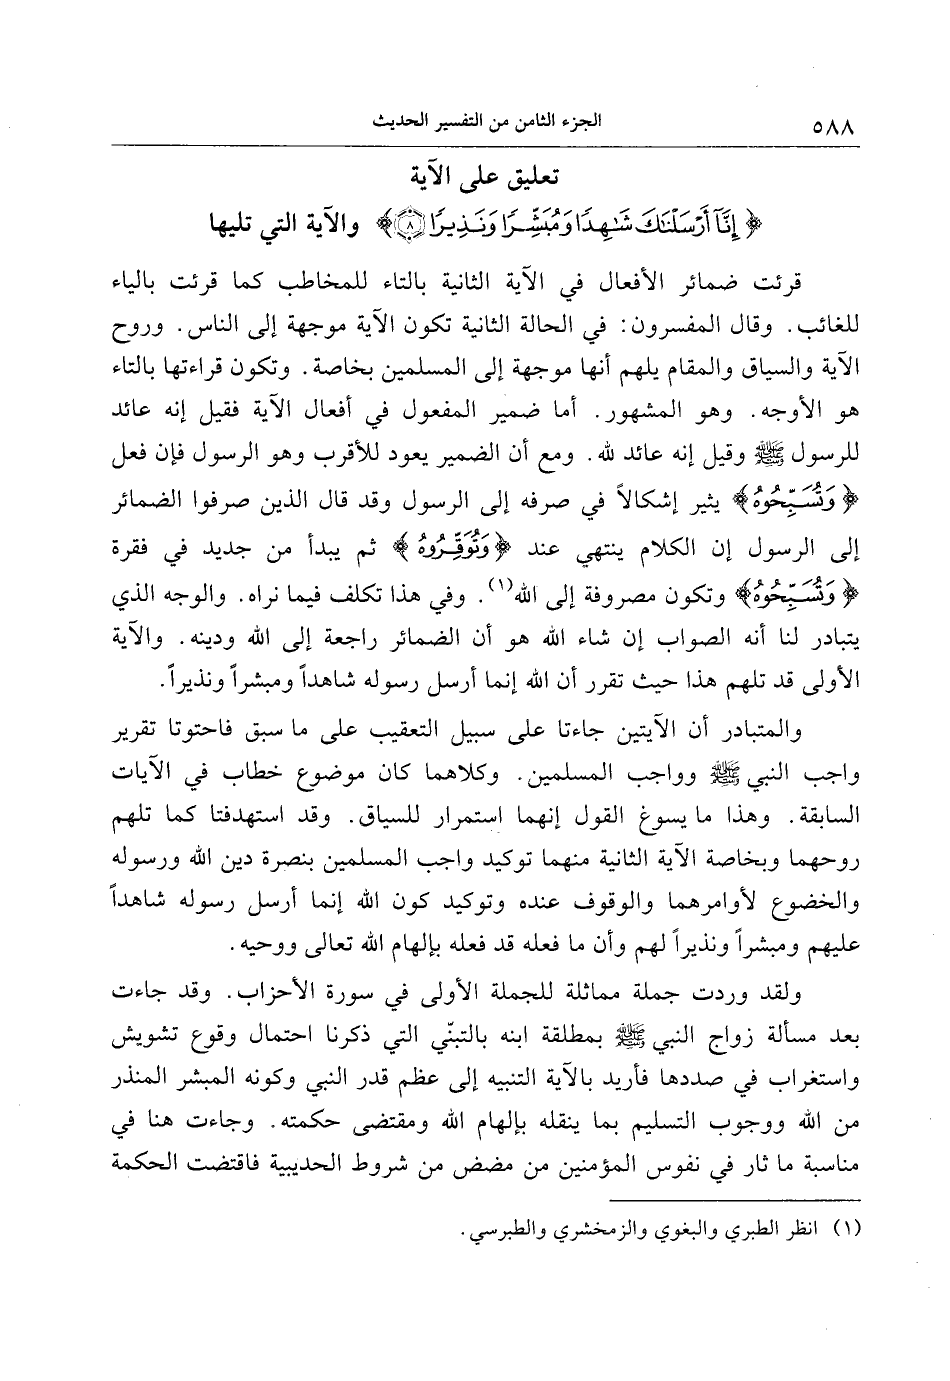 ٥٨٨ الجزء الثامن من التفسير الحديث
تعليق على الآية
﴿ إِنَّآ أَرْسَلْنَٰكَ شَٰهِدًا وَمُبَشِّرًا وَنَذِيرًا ٨ ﴾ والآية التي تليها
قرئت ضمائر الأفعال في الآية الثانية بالتاء للمخاطب كما قرئت بالياء
للغائب. وقال المفسرون: في الحالة الثانية تكون الآية موجهة إلى الناس. وروح
الآية والسياق والمقام يلهم أنها موجهة إلى المسلمين بخاصة. وتكون قراءتها بالتاء
هو الأوجه. وهو المشهور. أما ضمير المفعول في أفعال الآية فقيل إنه عائد
للرسول ﷺ وقيل إنه عائد لله. ومع أن الضمير يعود للأقرب وهو الرسول فإن فعل
﴿ وَتُسَبِّحُوهُ ﴾ يثير إشكالاً في صرفه إلى الرسول وقد قال الذين صرفوا الضمائر
إلى الرسول إن الكلام ينتهي عند ﴿ وَتُوَقِّرُوهُ ﴾ ثم يبدأ من جديد في فقرة
﴿ وَتُسَبِّحُوهُ ﴾ وتكون مصروفة إلى الله(١). وفي هذا تكلف فيما نراه. والوجه الذي
يتبادر لنا أنه الصواب إن شاء الله هو أن الضمائر راجعة إلى الله ودينه. والآية
الأولى قد تلهم هذا حيث تقرر أن الله إنما أرسل رسوله شاهداً ومبشراً ونذيراً.
والمتبادر أن الآيتين جاءتا على سبيل التعقيب على ما سبق فاحتوتا تقرير
واجب النبي ﷺ وواجب المسلمين. وكلاهما كان موضوع خطاب في الآيات
السابقة. وهذا ما يسوغ القول إنهما استمرار للسياق. وقد استهدفتا كما تلهم
روحهما وبخاصة الآية الثانية منهما توكيد واجب المسلمين بنصرة دين الله ورسوله
والخضوع لأوامرهما والوقوف عنده وتوكيد كون الله إنما أرسل رسوله شاهداً
عليهم ومبشراً ونذيراً لهم وأن ما فعله قد فعله بإلهام الله تعالى ووحيه.
ولقد وردت جملة مماثلة للجملة الأولى في سورة الأحزاب. وقد جاءت
بعد مسألة زواج النبي ﷺ بمطلقة ابنه بالتبنّي التي ذكرنا احتمال وقوع تشويش
واستغراب في صددها فأريد بالآية التنبيه إلى عظم قدر النبي وكونه المبشر المنذر
من الله ووجوب التسليم بما ينقله بإلهام الله ومقتضى حكمته. وجاءت هنا في
مناسبة ما ثار في نفوس المؤمنين من مضض من شروط الحديبية فاقتضت الحكمة
(١) انظر الطبري والبغوي والزمخشري والطبرسي.